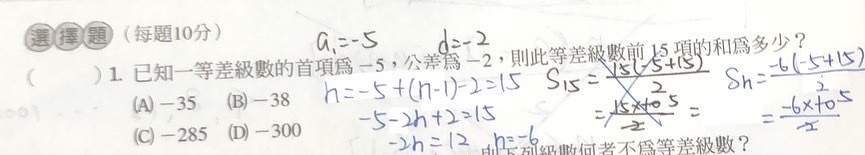 選擇題 (每題10分)
a₁=-5 d=-2
( ) 1. 已知一等差級數的首項為 -5,公差為 -2,則此等差級數前 15 項的和為多少?
(A) -35 (B) -38
(C) -285 (D) -300
n=-5+(n-1)-2=15
-5-2n+2=15
-2n=12 n=-6
S₁₅=15(-5+15)/2
=15×10 5/2 =
Sn=-6(-5+15)/2
=-6×10 5/2
下列級數何者不為等差級數?